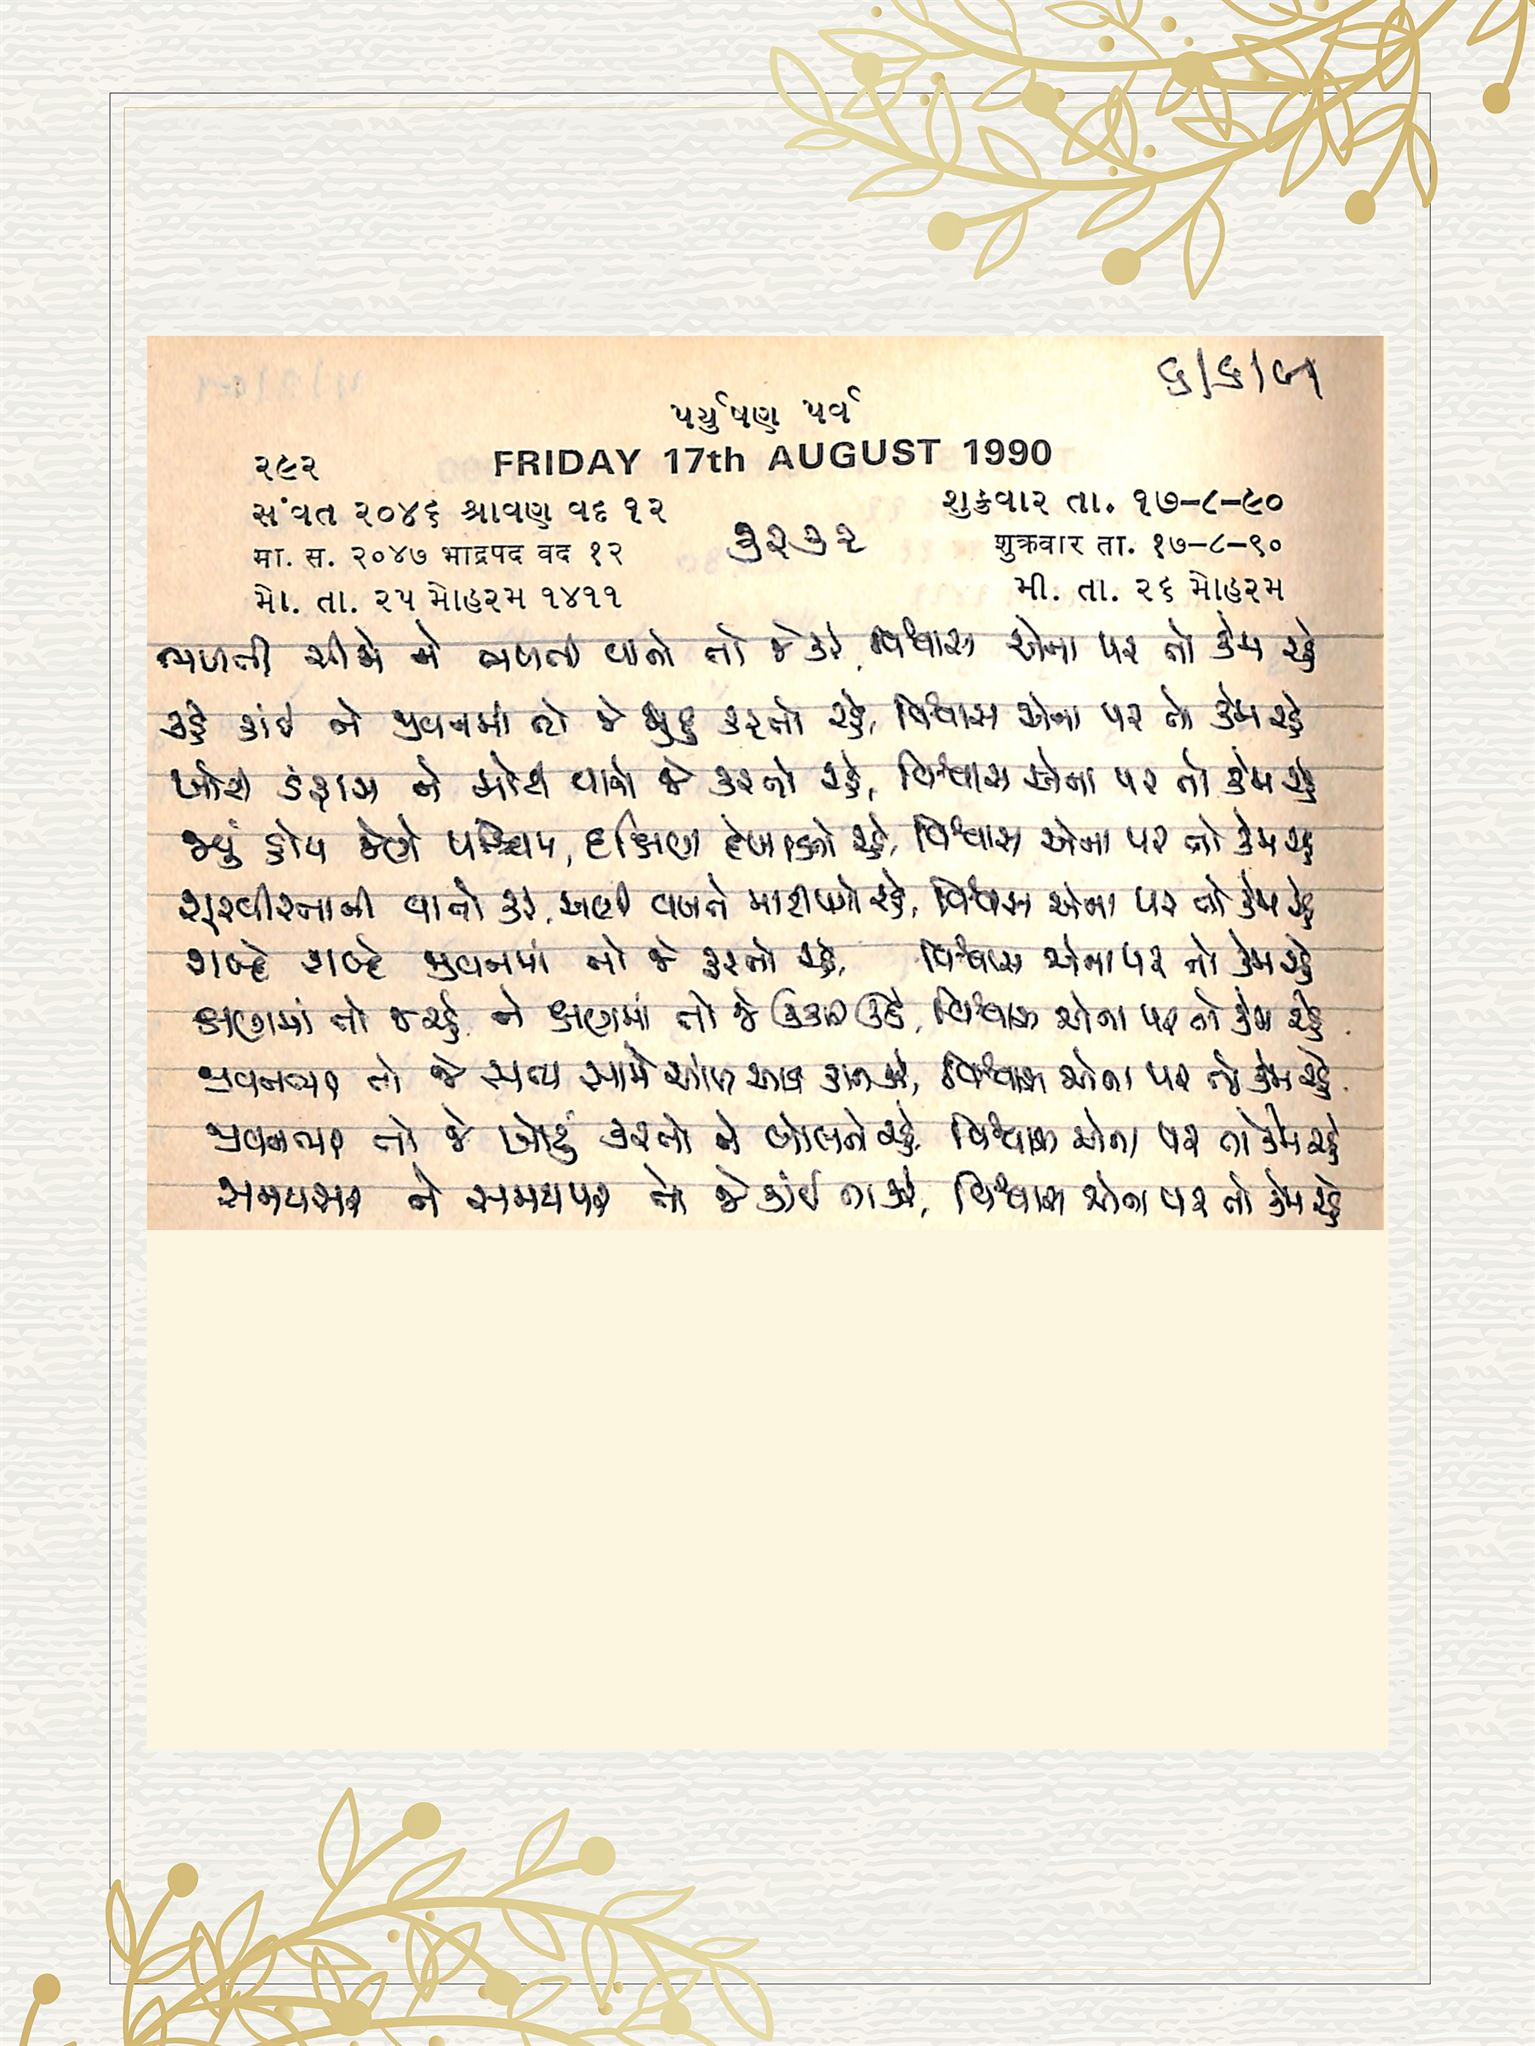 ૬/૬/૯૧
પર્યુષણ પર્વ
FRIDAY 17th AUGUST 1990
૨૯૨
સંવત ૨૦૪૬ શ્રાવણ વદ ૧૨
શુક્રવાર તા. ૧૭-૮-૯૦
मा. स. २०४७ भाद्रपद वद १२
૩૨૩૨
शुक्रवार ता. १७-८-९०
મો. તા. ૨૫ મોહરમ ૧૪૧૧
મી. તા. ૨૬ મોહરમ
ને વાતો તો જે કરે, વિશ્વાસ એના પર તો કેમ રહે
કહે કાંઈ ને જીવનમાં તો જે જુદું કરતો રહે, વિશ્વાસ એના પર તો કેમ રહે
ખોટી ડંફાસ ને મોટી વાતો જે કરતો રહે, વિશ્વાસ એના પર તો કેમ રહે
જવું હોય જેણે પશ્ચિમ, દક્ષિણ દેખાડતો રહે, વિશ્વાસ એના પર તો કેમ રહે
શૂરવીરતાની વાતો કરે, અણી વખતે રહે, વિશ્વાસ એના પર તો કેમ રહે
શબ્દે શબ્દે જીવનમાં તો જે ફરતો રહે, વિશ્વાસ એના પર તો કેમ રહે
ક્ષણમાં તો જે રહે ને ક્ષણમાં તો જે ઊઠે, વિશ્વાસ એના પર તો કેમ રહે
જીવનભર તો જે સત્ય સામે આંખ આડા કાન કરે, વિશ્વાસ એના પર તો કેમ રહે
જીવનભર તો જે ખોટું કરતો ને બોલતો રહે, વિશ્વાસ એના પર તો કેમ રહે
સમયસર ને સમયપર તો જે કાંઈ ના કરે, વિશ્વાસ એના પર તો કેમ રહે